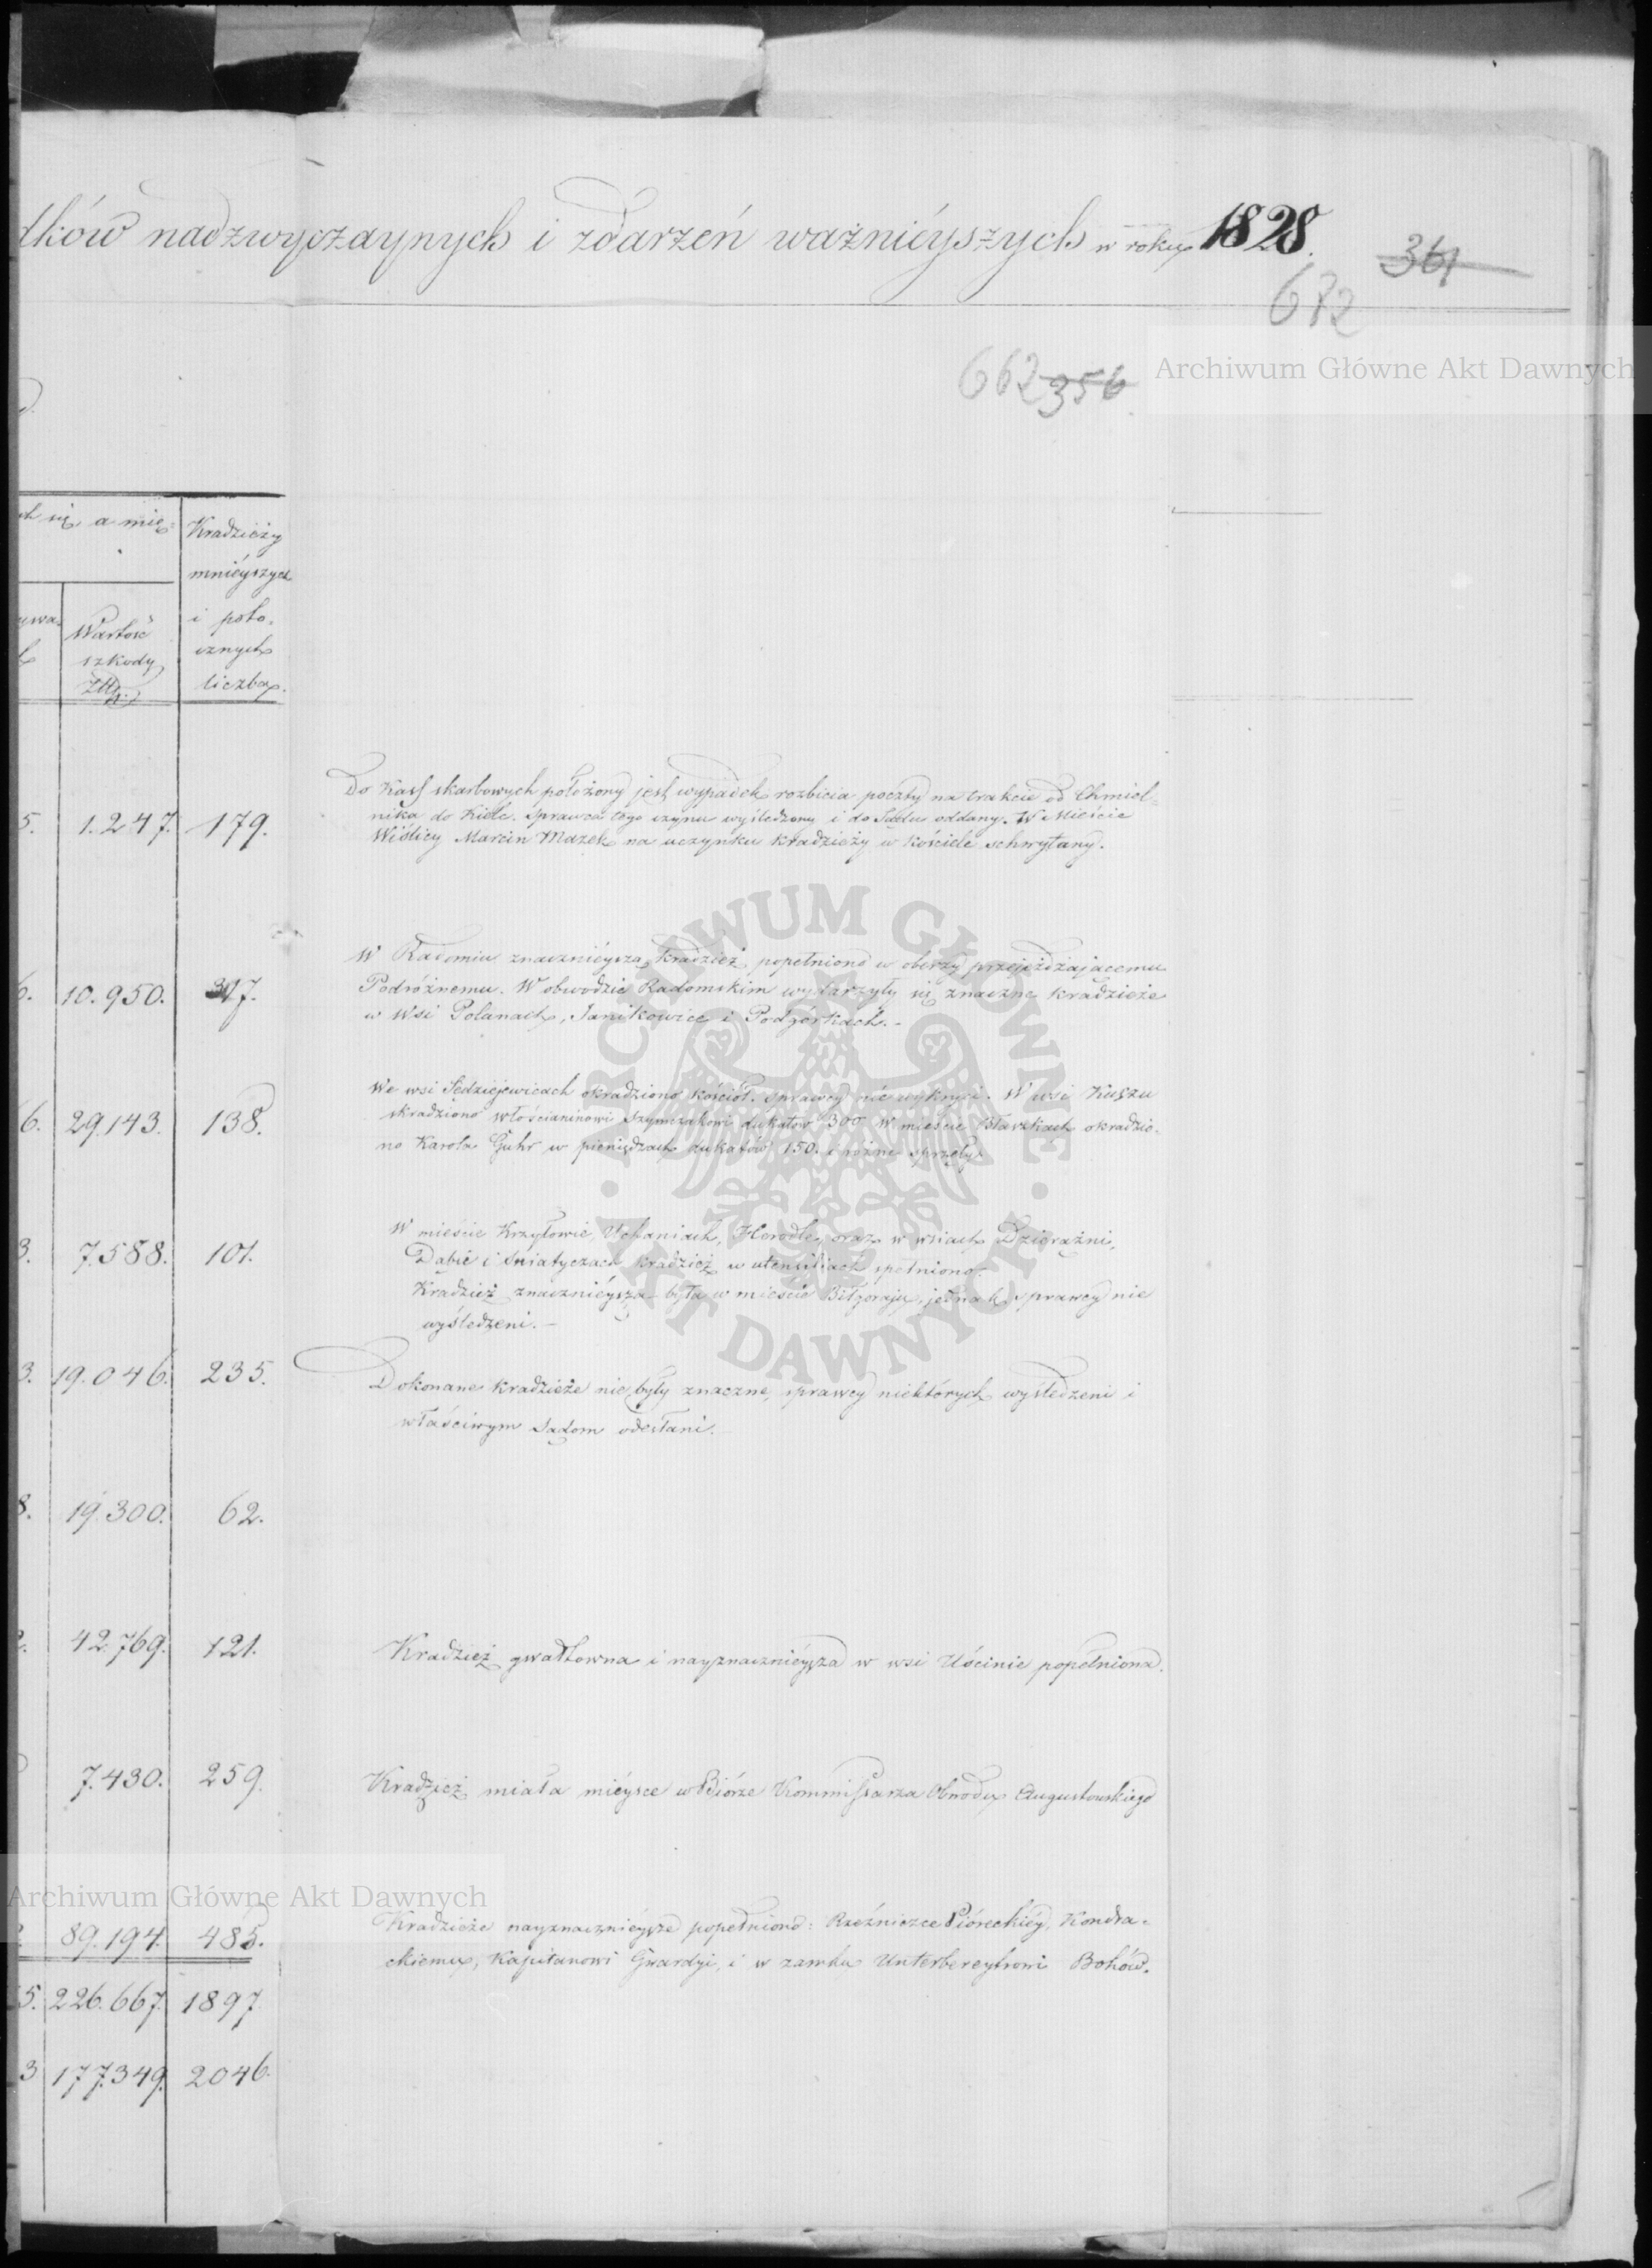 dków nadzwyczaynych i zdarzeń ważniéyszych w roku 1828.
361
682
662 356
Archiwum Główne Akt Dawnych
ch się a mię=
Kradzieży
mnieyszych
i poto=
cznych
liczba.
Wartość
szkody
Złtp.
5. 1.247. 179.
Do Kass skarbowych położony jest wypadek rozbicia poczty na trakcie od Chmiel=
nika do Kielc. Sprawca tego czynu wyśledzony i do Sądu oddany. W Mieście
Wiślicy Marcin Mazek na uczynku kradzieży w kościele schwytany.
6. 10.950. 317.
W Radomiu znacznieysza kradzież popełniono w oberzy przejeżdżającemu
Podróżnemu. W obwodzie Radomskim wydarzyły się znaczne kradzieże
w Wsi Polanach, Janikowice i Podgórkach.-
6. 29.143. 138.
We wsi Sędziejewicach okradziono kościół. Sprawcy nie wykryci. W wsi
skradziono włościaninowi Szymczakowi dukatów 300 W mieście Błaszkach okradzio=
no Karola Guhr w pieniądzach dukatów 150. i różne sprzęty.
3. 7.588. 101.
W mieście Kryłowie, Uchaniach, Horodle, oraz w wsiach Dzieraźni,
Dąbie i Sniatyczach kradzież w utensiliach spełniono.
Kradzież znacznieysza była w mieście Biłgoraju, jednak sprawcy nie
wyśledzeni.-
3. 19.046. 235.
Dokonane kradzieże nie były znaczne, sprawcy niektórych wyśledzeni i
właściwym Sądom odesłani.
8. 19.300. 62.
2. 42.769. 121.
Kradzież gwałtowna i nayznacznieysza w wsi Uścinie popełniona.
7.430. 259.
Kradzież miała mieysce w Biórze Kommissarza Obwodu Augustowskiego
Archiwum Główne Akt Dawnych
89.194. 485.
Kradzieże nayznacznieysze popełniono: Rzeźniczce Pióreckiéy, Kondra=
ckiemu, Kapitanowi Gwardyi, i w zamku Unterbereytrowi Bohów.
5. 226.667. 1897
3 177.349. 2046.
ARCHIWUM GŁÓWNE
AKT DAWNYCH